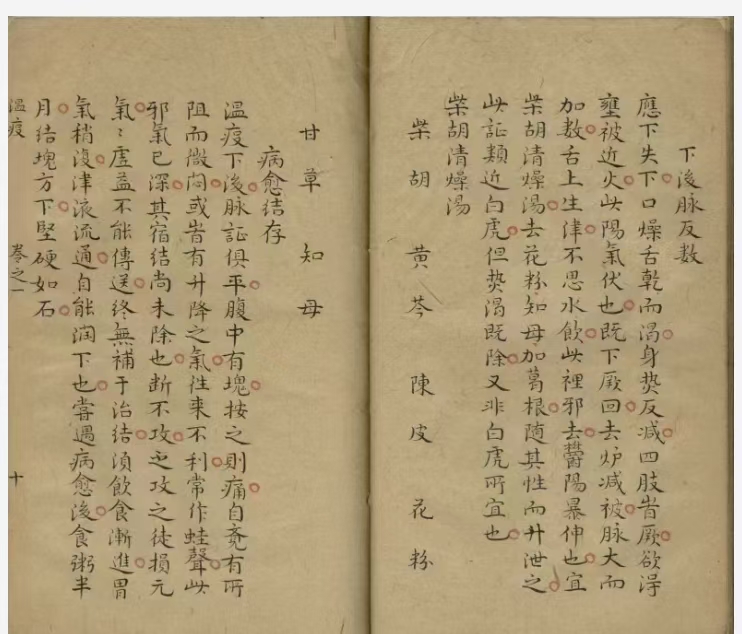 下後脉反数
應下失下口燥舌乾而渴身𤍠反减四肢皆厥欲淂
壅被近火此陽氣伏也既下厥回去炉减被脉大而
加数舌上生津不思水飲此裡邪去鬱陽暴伸也宜
柴胡清燥湯去花粉知母加葛根随其性而升泄之
此証類近白虎但𤍠渴既除又非白虎所宜也
柴胡清燥湯
柴胡 黄芩 陳皮 花粉
甘草 知母
病愈结存
温疫下後脉証俱平腹中有塊按之則痛自覔有所
阻而微闷或旹有升降之氣往来不利常作蛙聲此
邪氣已深其宿结尚未除也断不攻之攻之徒損元
氣〻虚益不能傳送终無補于治结湏飲食漸進胃
氣稍復津液流通自能润下也嘗遇病愈後食粥半
月结塊方下堅硬如石
温疫 卷之一 十